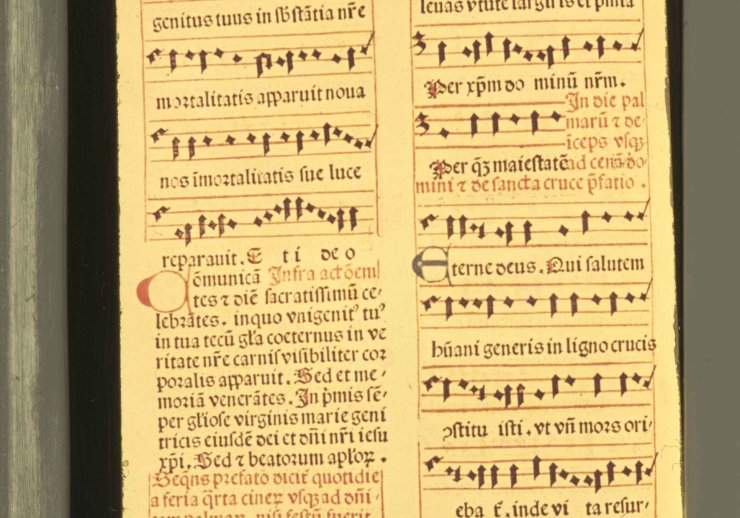 genitus tuus in sb̄stātia nr̄e
mortalitatis apparuit noua
nos īmortalitatis sue luce
reparauit. E t i de o
Cōmunicā Infra actōem
tes ⁊ diē sacratissimū ce-
lebrātes. in quo vnigenitꝰ tuꝰ
in tua tecū gl̄a coeternus in ve
ritate nr̄e carnis visibiliter cor
poralis apparuit. Sed et me-
moriā venerātes. In p̄mis sē-
per gl̄iose virginis marie geni
tricis eiusdē dei et dn̄i nr̄i iesu
xp̄i. Sed ⁊ beatorum apl'oꝝ.
Seqn̄s prefatō dicit̄ quotidie
a feria q̄rta cineꝝ vsqꝫ ad dn̄i-
nisi festū fuerit
leuas v̄tute largiris et p̄mia
Per xp̄m do minū nr̄m.
In die pal
marū ⁊ de-
īceps vsqꝫ
Per qꝫ maiestatē ad cenā do
mini ⁊ de sancta cruce p̄fatio.
Eterne deus. Qui salutem
hūani generis in ligno crucis
ꝯstitu isti. vt vn̄ mors ori-
eba t̄. inde vi ta resur-